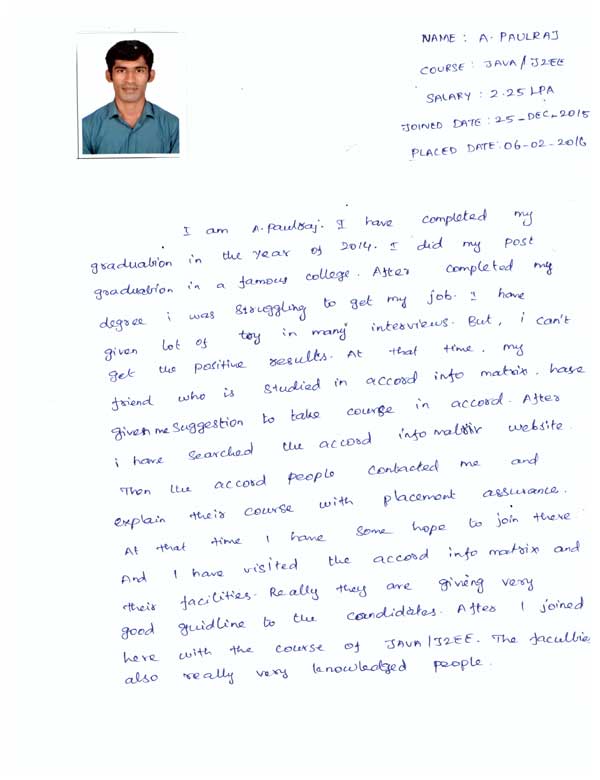 NAME : A. PAULRAJ
COURSE : JAVA/J2EE
SALARY : 2.25 LPA
JOINED DATE : 25-DEC-2015
PLACED DATE: 06-02-2016
I am A.Paulraj. I have completed my
graduation in the year of 2014. I did my post
graduation in a famous college. After completed my
degree i was struggling to get my job. I have
given lot of toy in many interviews. But, i can't
get the positive results. At that time, my
friend who is studied in accord info matrix, have
given me suggestion to take course in accord. After
i have searched the accord info matrix website.
Then the accord people contacted me and
explain their course with placement assurance.
At that time I have some hope to join there
And I have visited the accord info matrix and
their facilities. Really they are giving very
good guidline to the candidates. After I joined
here with the course of JAVA/J2EE. The faculties
also really very knowledged people.